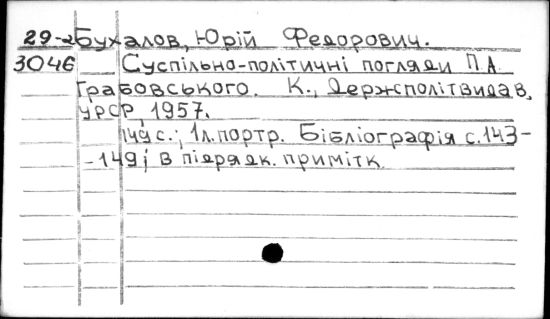 29-2 Бухалов, Юрій Федорович.
3046 Суспільно-політичні погляди П.А.
Грабовського. К., Держсполітвидав,
УРСР, 1957.
149с.; 1л.портр. Бібліографія с.143-
-149 і в підрядк. примітк.